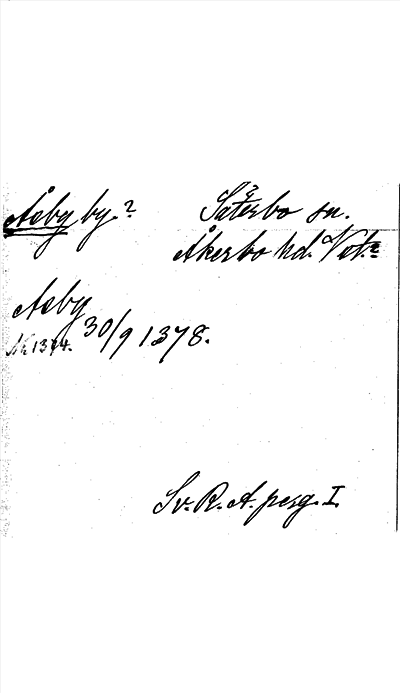 Åsby by? Säterbo sn.
Åkerbo hd. Vstm.
Asby
30/9 1378.
Sv. R. A. perg. I.